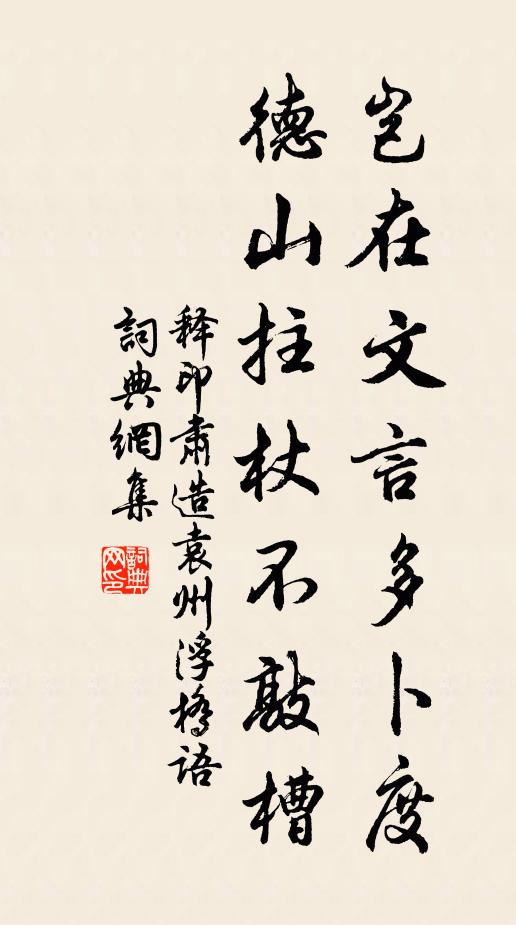 岂在文言多卜度
德山拄杖不敲槽
释印肃造袁州浮桥语
詞典網集
詞典网印